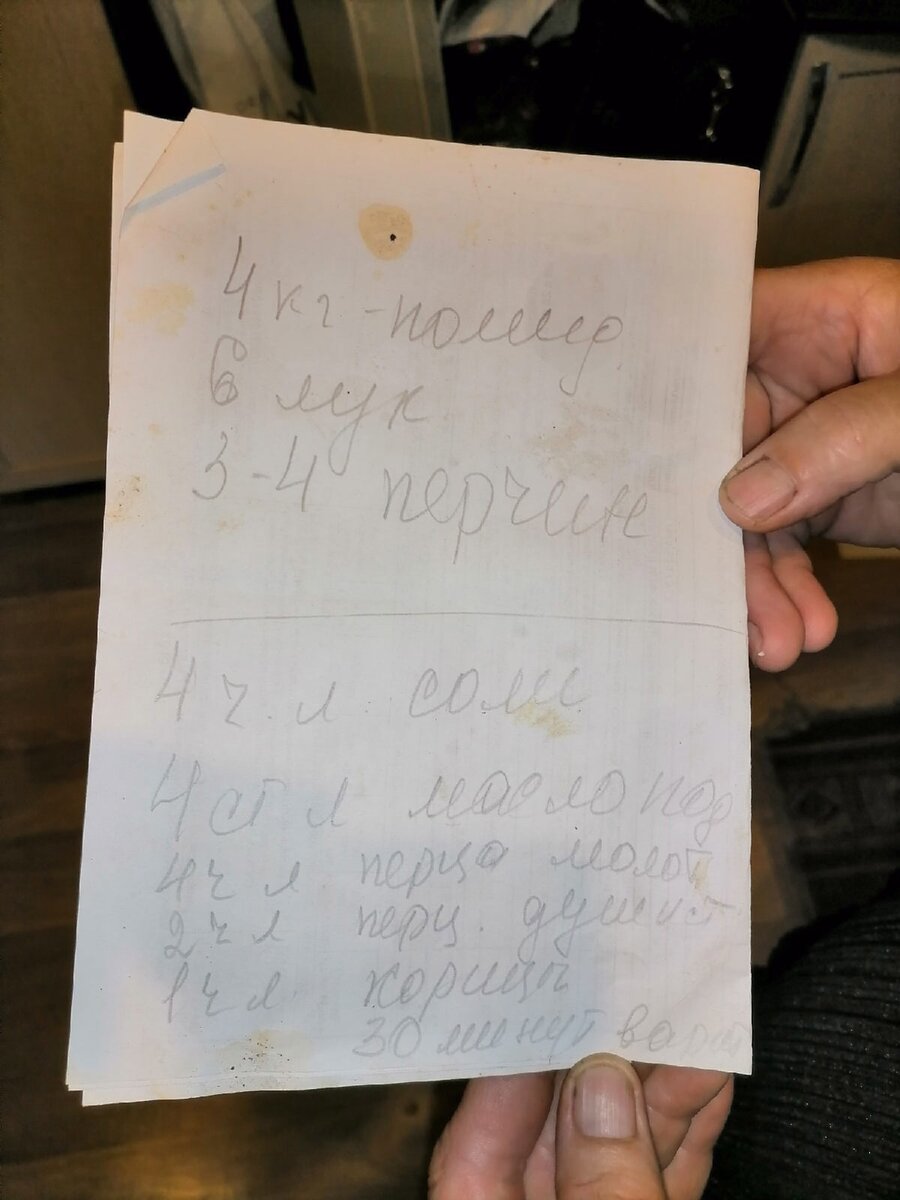 4 кг - помид.
6 лук
3-4 перчин
4 ч. л. соли
4 ст л масло под
4 ч л перца молот
2 ч л перц. душист
1 ч л. корицы
30 минут варит